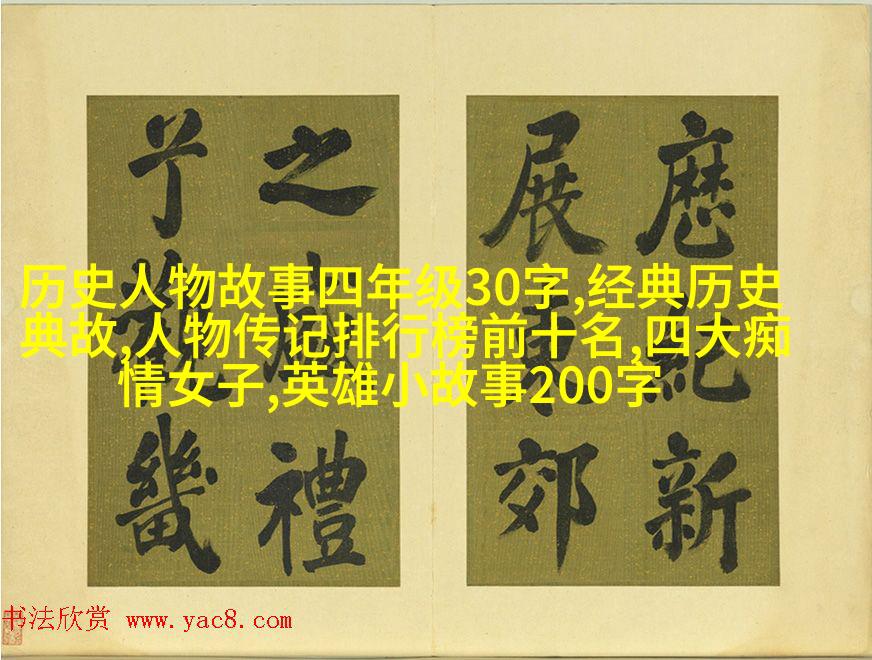 历史人物故事四年级30字,经典历史
典故,人物传记排行榜前十名,四大痴
情女子,英雄小故事200字
紀新
展東郊
之盛禮
觀畿
书法欣赏 www.yac8.com